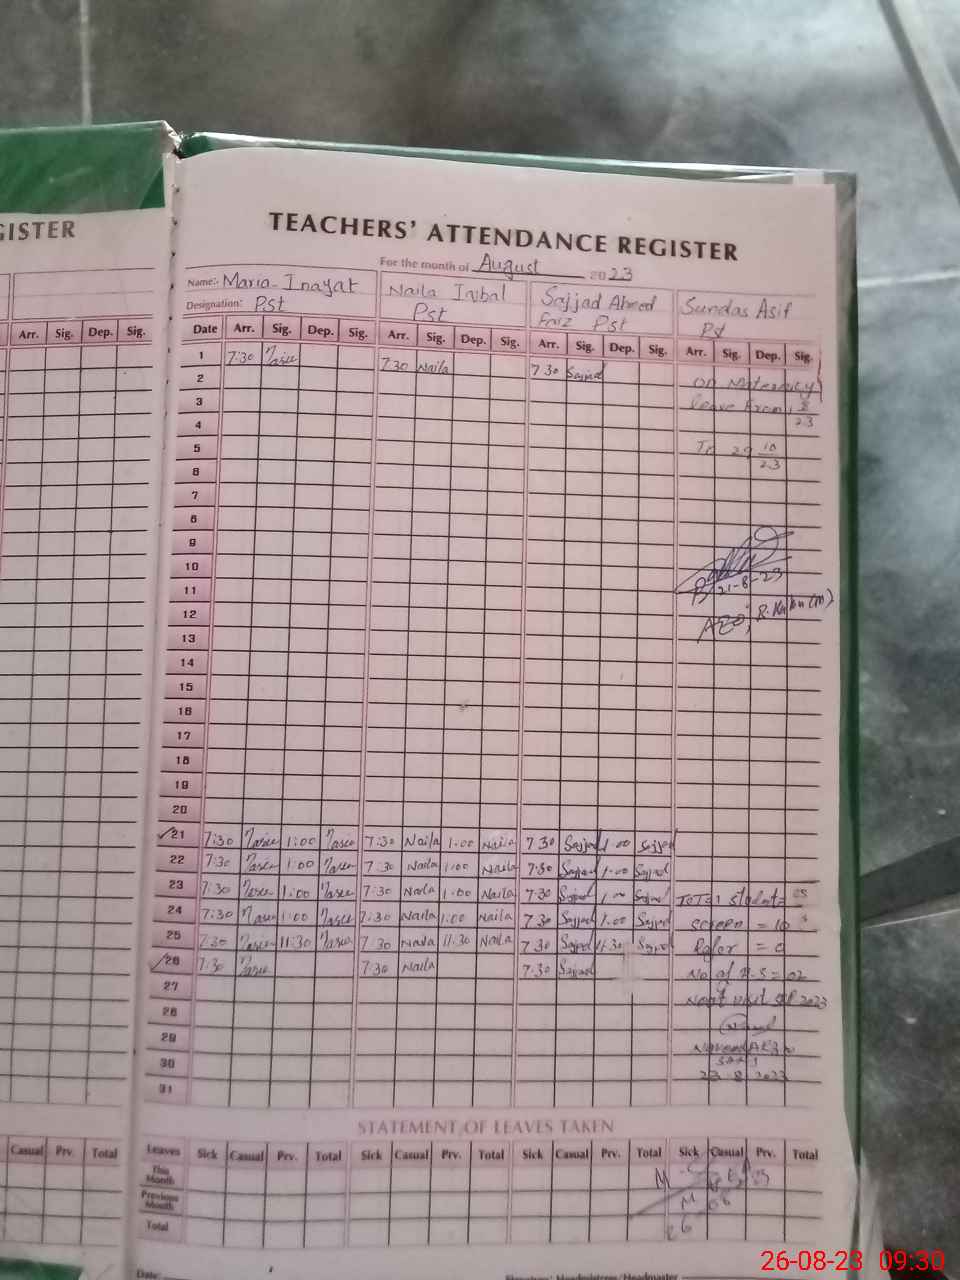 GISTER
Arr. Sig. Dep. Sig.
Casual Prv. Total
TEACHERS' ATTENDANCE REGISTER
For the month of August 2023
Name:- Maria Inayat Naila Iqbal Sajjad Ahmed Sundas Asif
Designation: Pst Pst Faiz Pst Pst
Date Arr. Sig. Dep. Sig. Arr. Sig. Dep. Sig. Arr. Sig. Dep. Sig. Arr. Sig. Dep. Sig.
1 7:30 7:30 Naila 7 30 Sajjad
2 on Maternity
3 leave From
4 23
5 To 29 10
6 23
7
8
9
10
11 21-8-23
12 AEO,
13
14
15
16
17
18
19
20
21 7:30 1:00 7:30 Naila 1:00 Naila 7 30 Sajjad 1.00 Sajjad
22 7:30 1:00 7:30 Naila 1:00 Naila 7:30 Sajjad 1.00 Sajjad
23 7:30 1:00 7:30 Naila 1:00 Naila 7:30 Sajjad 1.00 Sajjad Total student=
24 7:30 1:00 7:30 Naila 1:00 Naila 7 30 Sajjad 1.00 Sajjad screen = 10
25 7:30 11:30 7:30 Naila 11:30 Naila 7 30 Sajjad 11:30 Sajjad Refer = 0
26 7:30 7:30 Naila 7:30 Sajjad No of = 02
27 Next visit 2023
28
29
30
31 23 8 2023
STATEMENT OF LEAVES TAKEN
Leaves Sick Casual Prv. Total Sick Casual Prv. Total Sick Casual Prv. Total Sick Casual Prv. Total
This Month
Previous Month
Total
Date: Signature: Headmistress/Headmaster
26-08-23 09:30